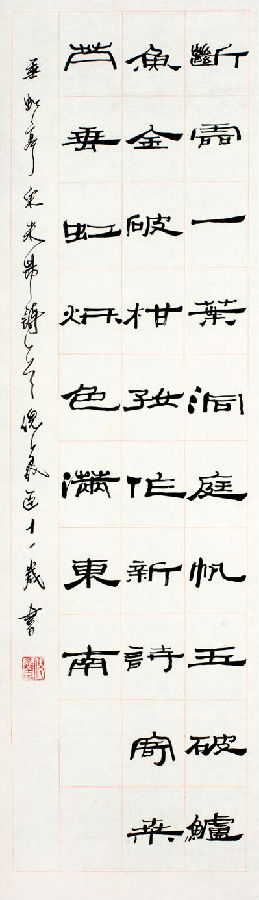 斷雲一葉洞庭帆玉破鱸
魚金破柑好作新詩寄桒
苎垂虹秌色滿東南
垂虹亭宋米芾詩一首倪十一歲書